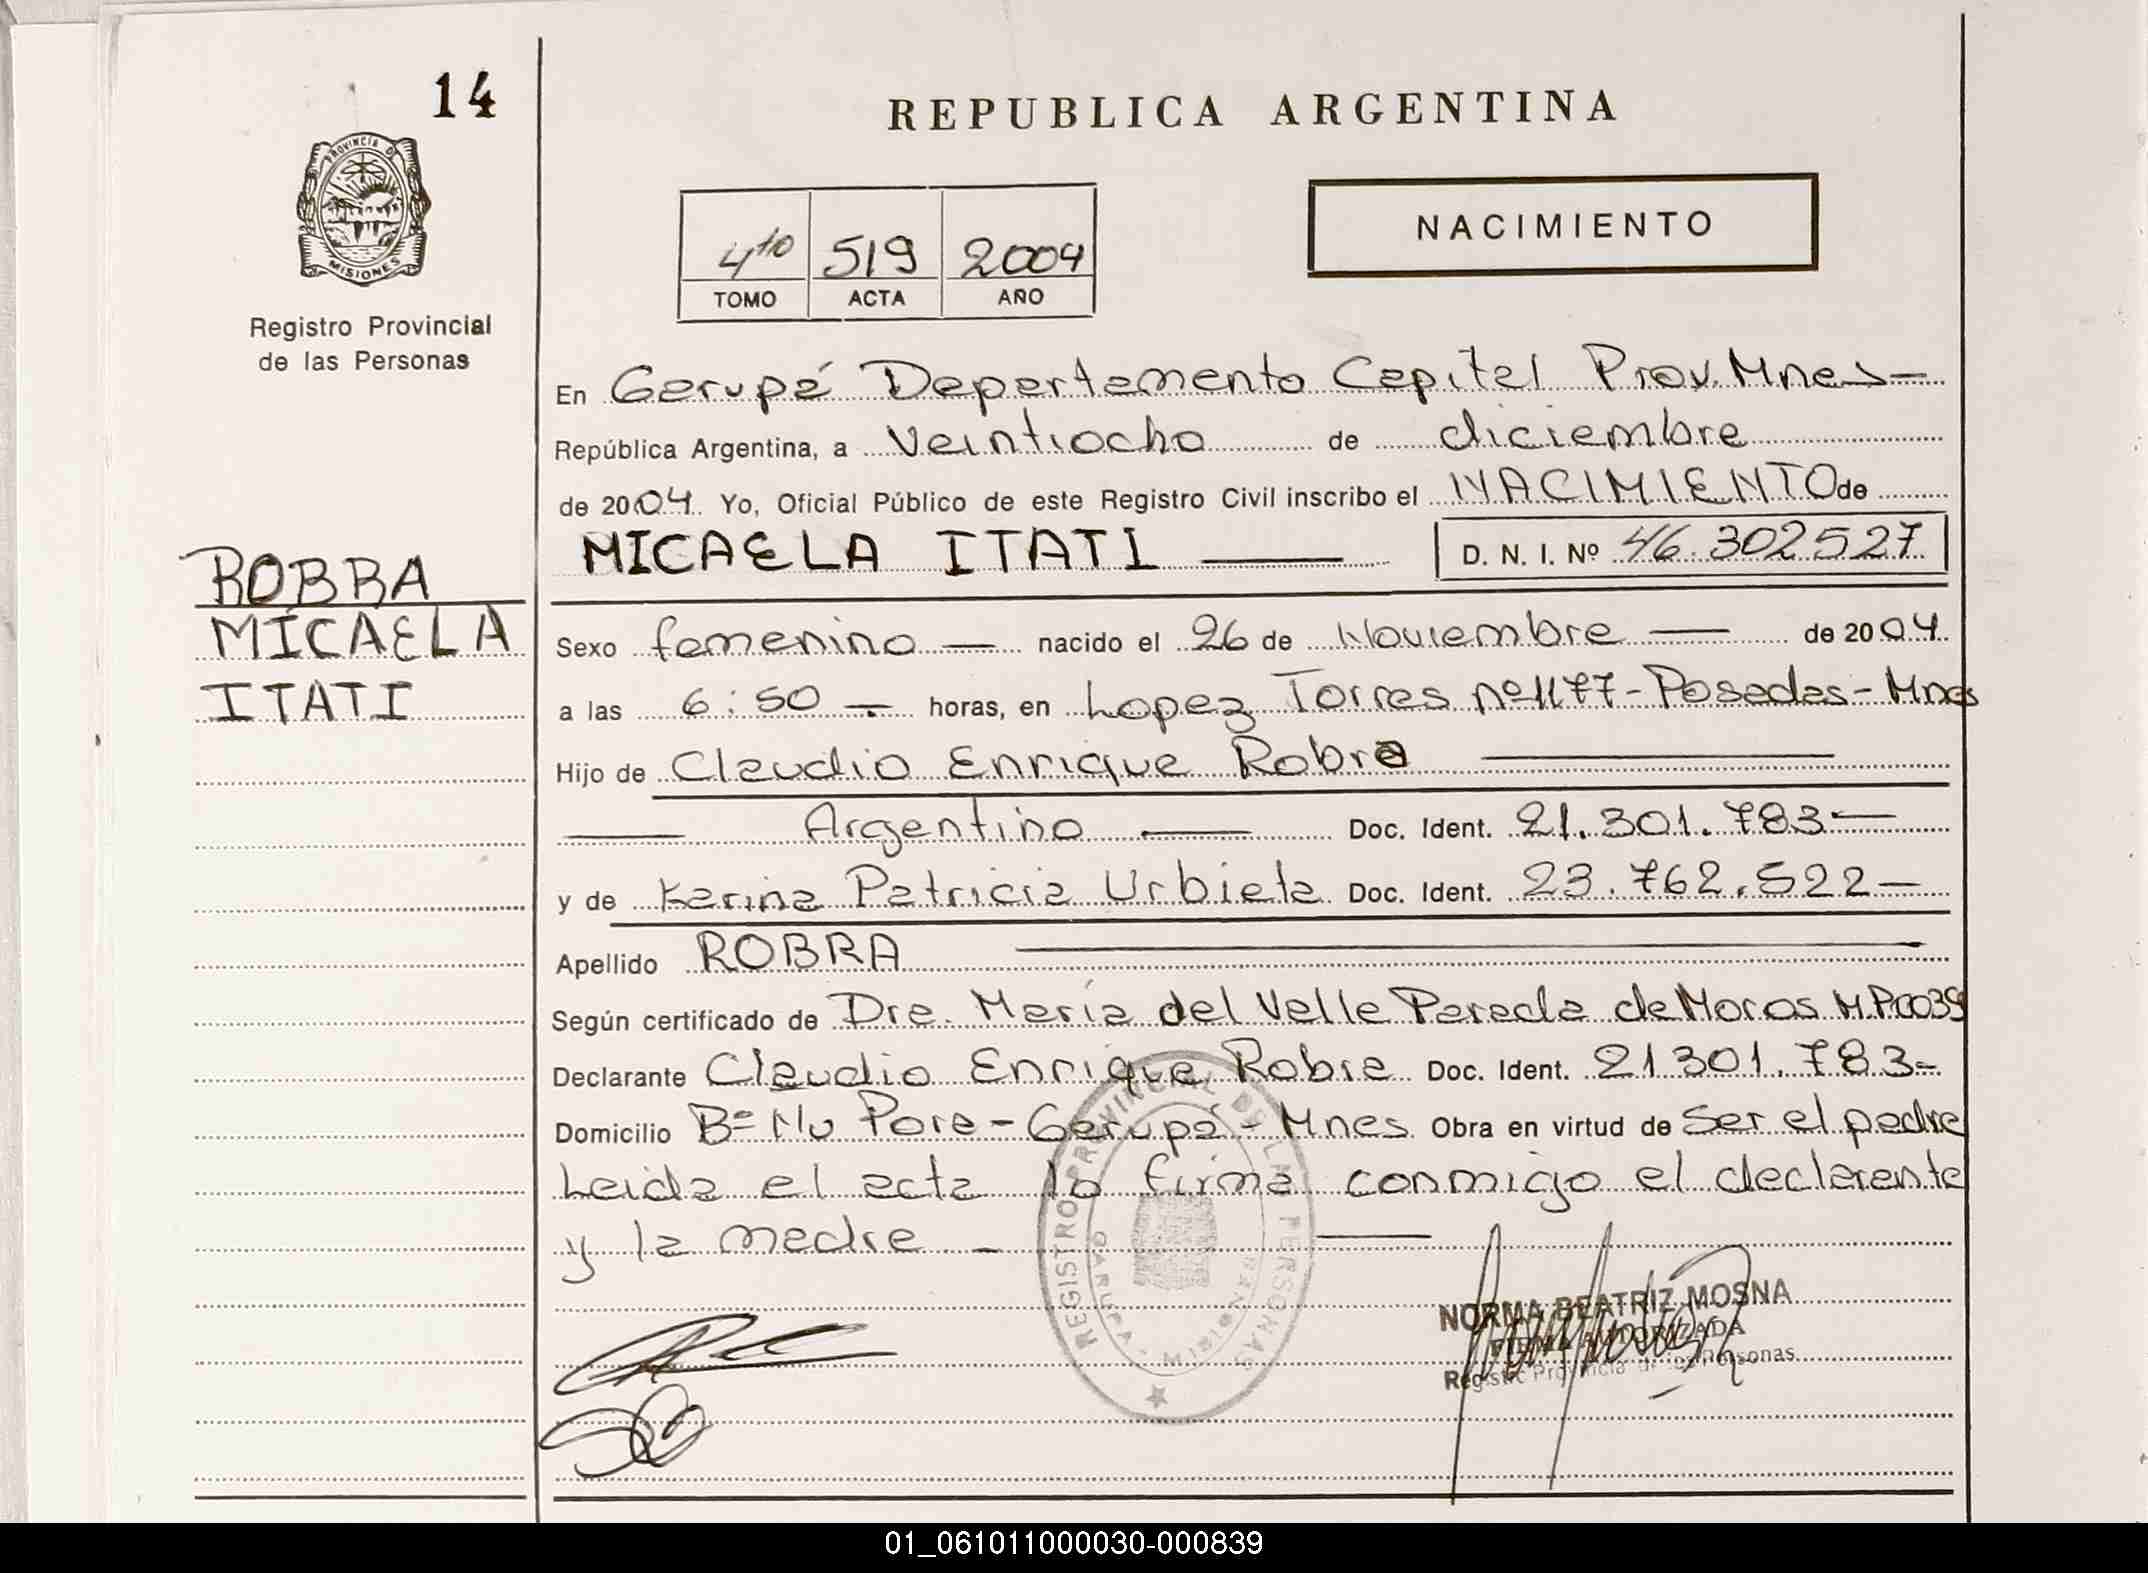 14
REPUBLICA ARGENTINA
PROVINCIA DE
MISIONES
Registro Provincial
de las Personas
4to 519 2004
TOMO ACTA AÑO
NACIMIENTO
En Garupá Departamento Capital Prov. Mnes-
República Argentina, a Veintiocho de diciembre
de 2004. Yo, Oficial Público de este Registro Civil inscribo el NACIMIENTO de
MICAELA ITATI — D. N. I. Nº 46.302527
ROBRA
MICAELA
ITATI
Sexo femenino — nacido el 26 de Noviembre — de 2004.
a las 6:50 — horas, en Lopez Torres nº1177-Posadas-Mnes
Hijo de Claudio Enrique Robra —
— Argentino — Doc. Ident. 21.301.783—
y de Karina Patricia Urbieta Doc. Ident. 23.762.522—
Apellido ROBRA —
Según certificado de Dra. María del Valle Pareda de Moras M.P.0039
Declarante Claudio Enrique Robra Doc. Ident. 21301.783-
Domicilio Bº Ñu Pora-Garupá-Mnes Obra en virtud de Ser el padre
Leida el acta la firma conmigo el declarante
y la madre — —
REGISTRO PROVINCIAL DE LAS PERSONAS
NORMA BEATRIZ MOSNA
FIRMA AUTORIZADA
Registro Provincial de las Personas
01_061011000030-000839